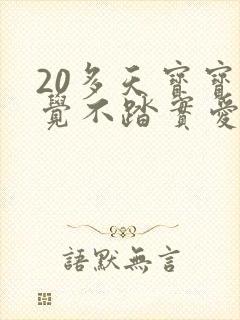 20多天寶寶
覺不踏實愛
語默無言